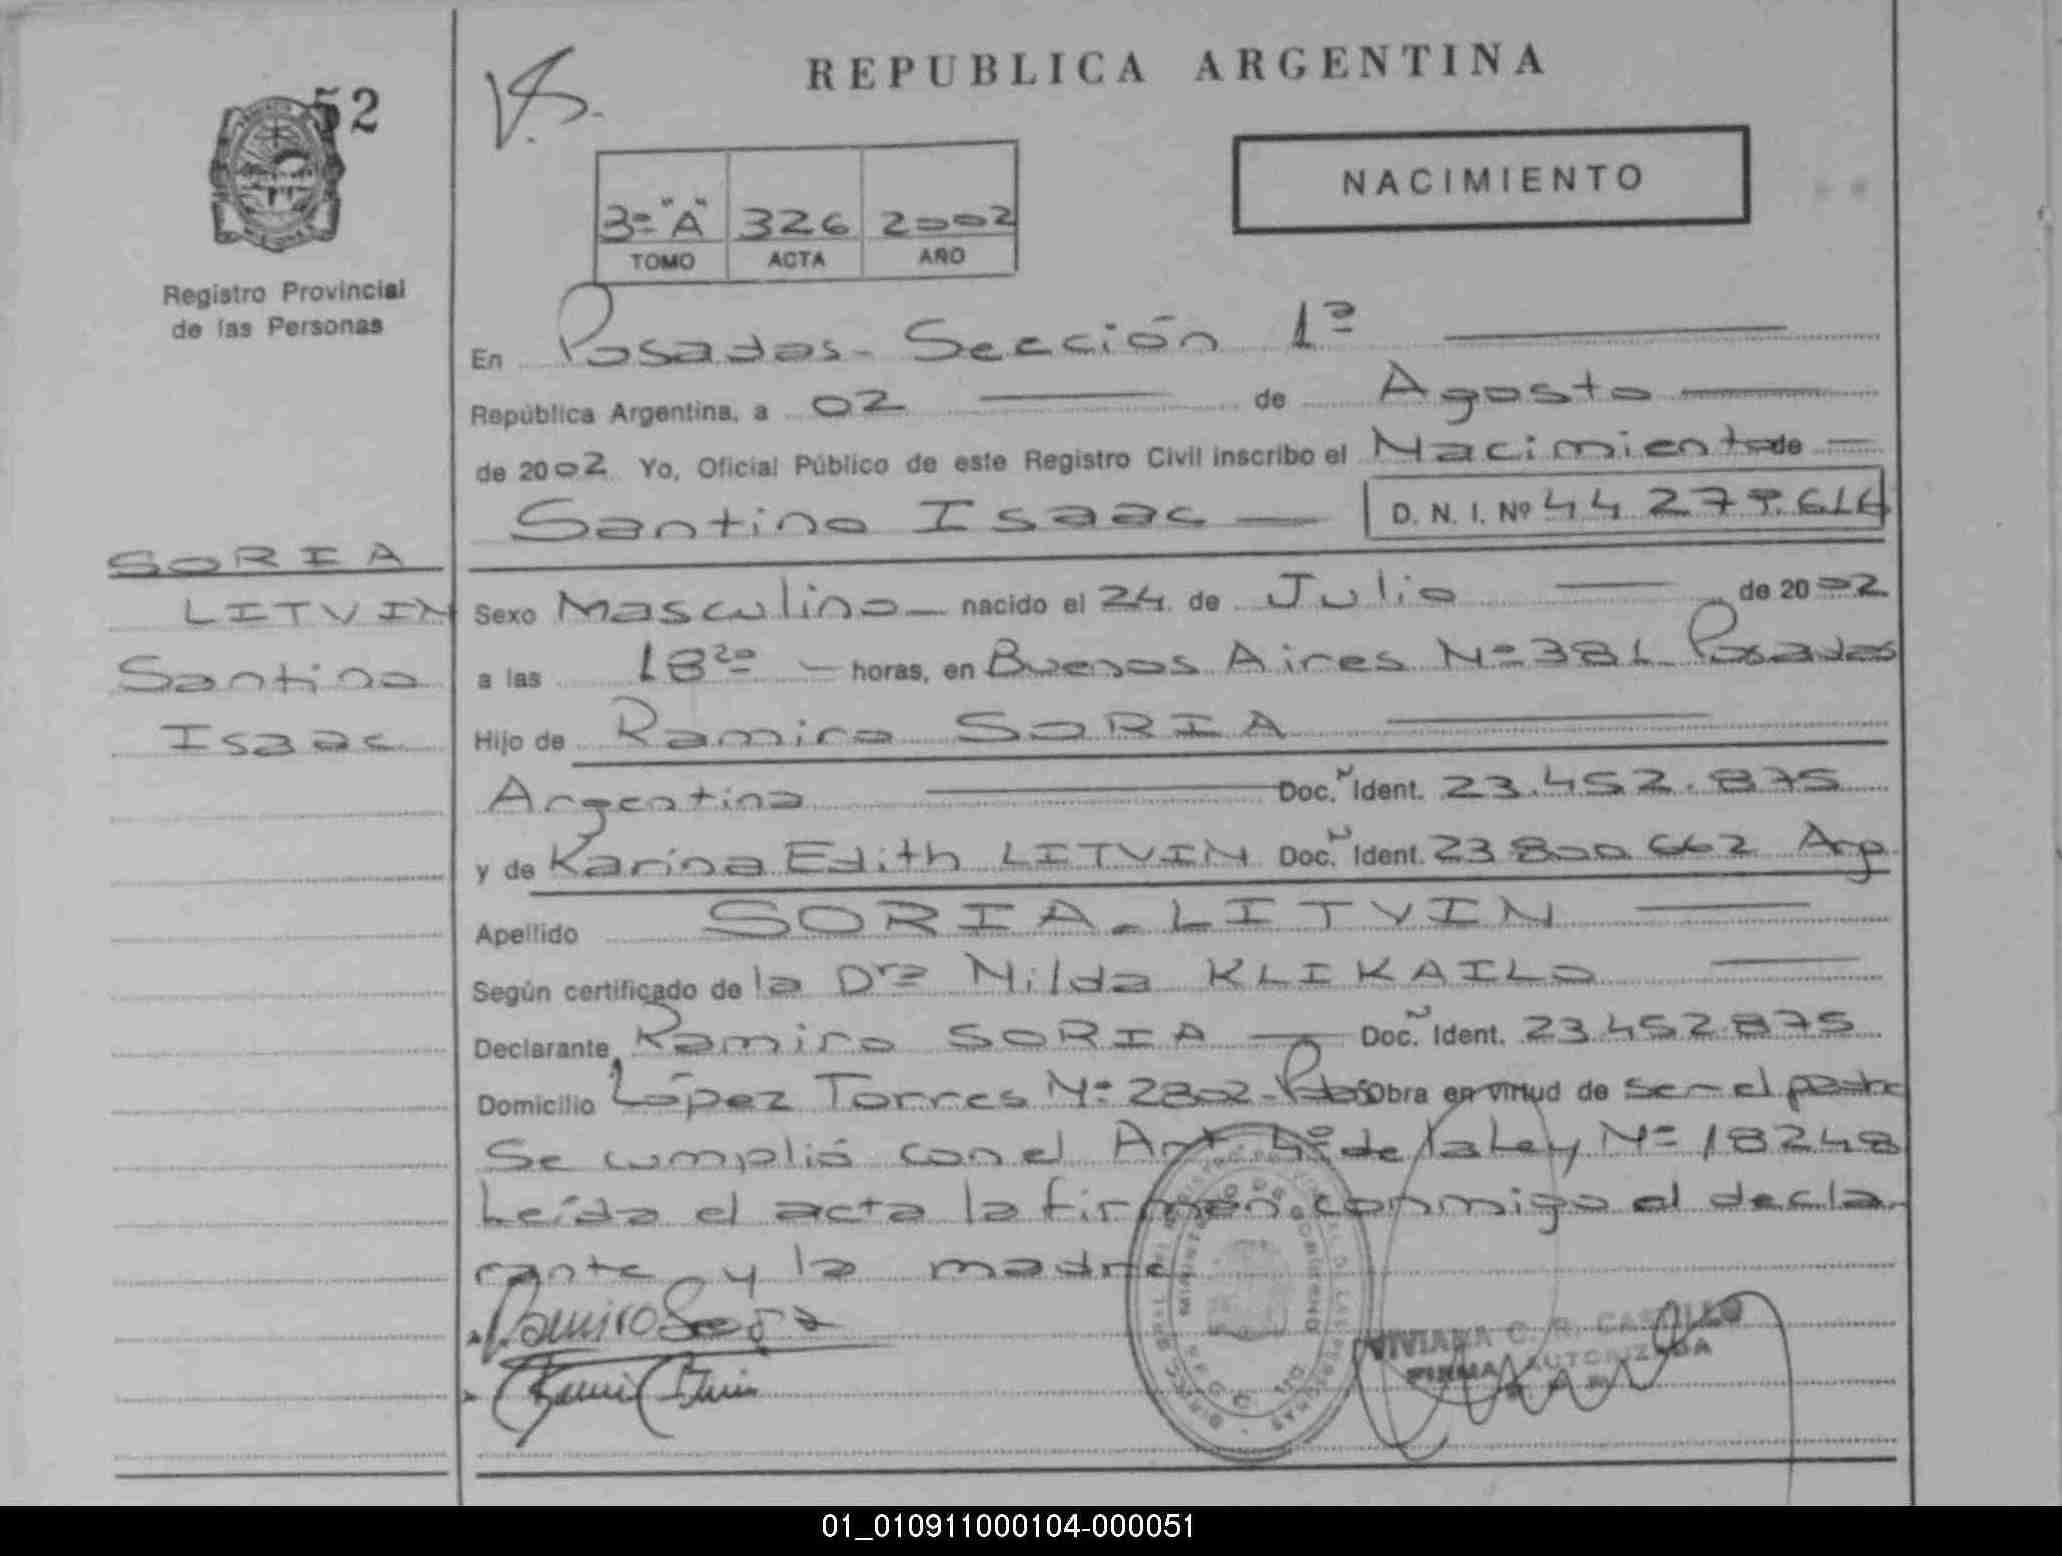 52
V.S.
REPUBLICA ARGENTINA
NACIMIENTO
3º "A" 326 2002
TOMO ACTA AÑO
Registro Provincial
de las Personas
En Posadas - Sección 1ª
República Argentina, a 02 de Agosto
de 2002 Yo, Oficial Público de este Registro Civil inscribo el Nacimiento de
Santino Isaac D. N. I. Nº 44 279.616
SORIA
LITVIN
Santino
Isaac
Sexo Masculino nacido el 24 de Julio de 2002
a las 18 20 horas, en Buenos Aires Nº 381 Posadas
Hijo de Ramiro SORIA
Argentino Doc. Ident. 23.452.875
y de Karina Edith LITVIN Doc. Ident. 23 800 662 Arg
Apellido SORIA - LITVIN
Según certificado de la Dra Nilda KLIKAILO
Declarante Ramiro SORIA Doc. Ident. 23 452 875
Domicilio López Torres Nº 2802 - Pdas Obra en virtud de ser el padre
Se cumplió con el Art. 4º de la Ley Nº 18248
Leída el acta la firman conmigo el decla-
rante y la madre
Ramiro Soria
VIVIANA C. R. CASTILLO
FIRMA AUTORIZADA
01_010911000104-000051